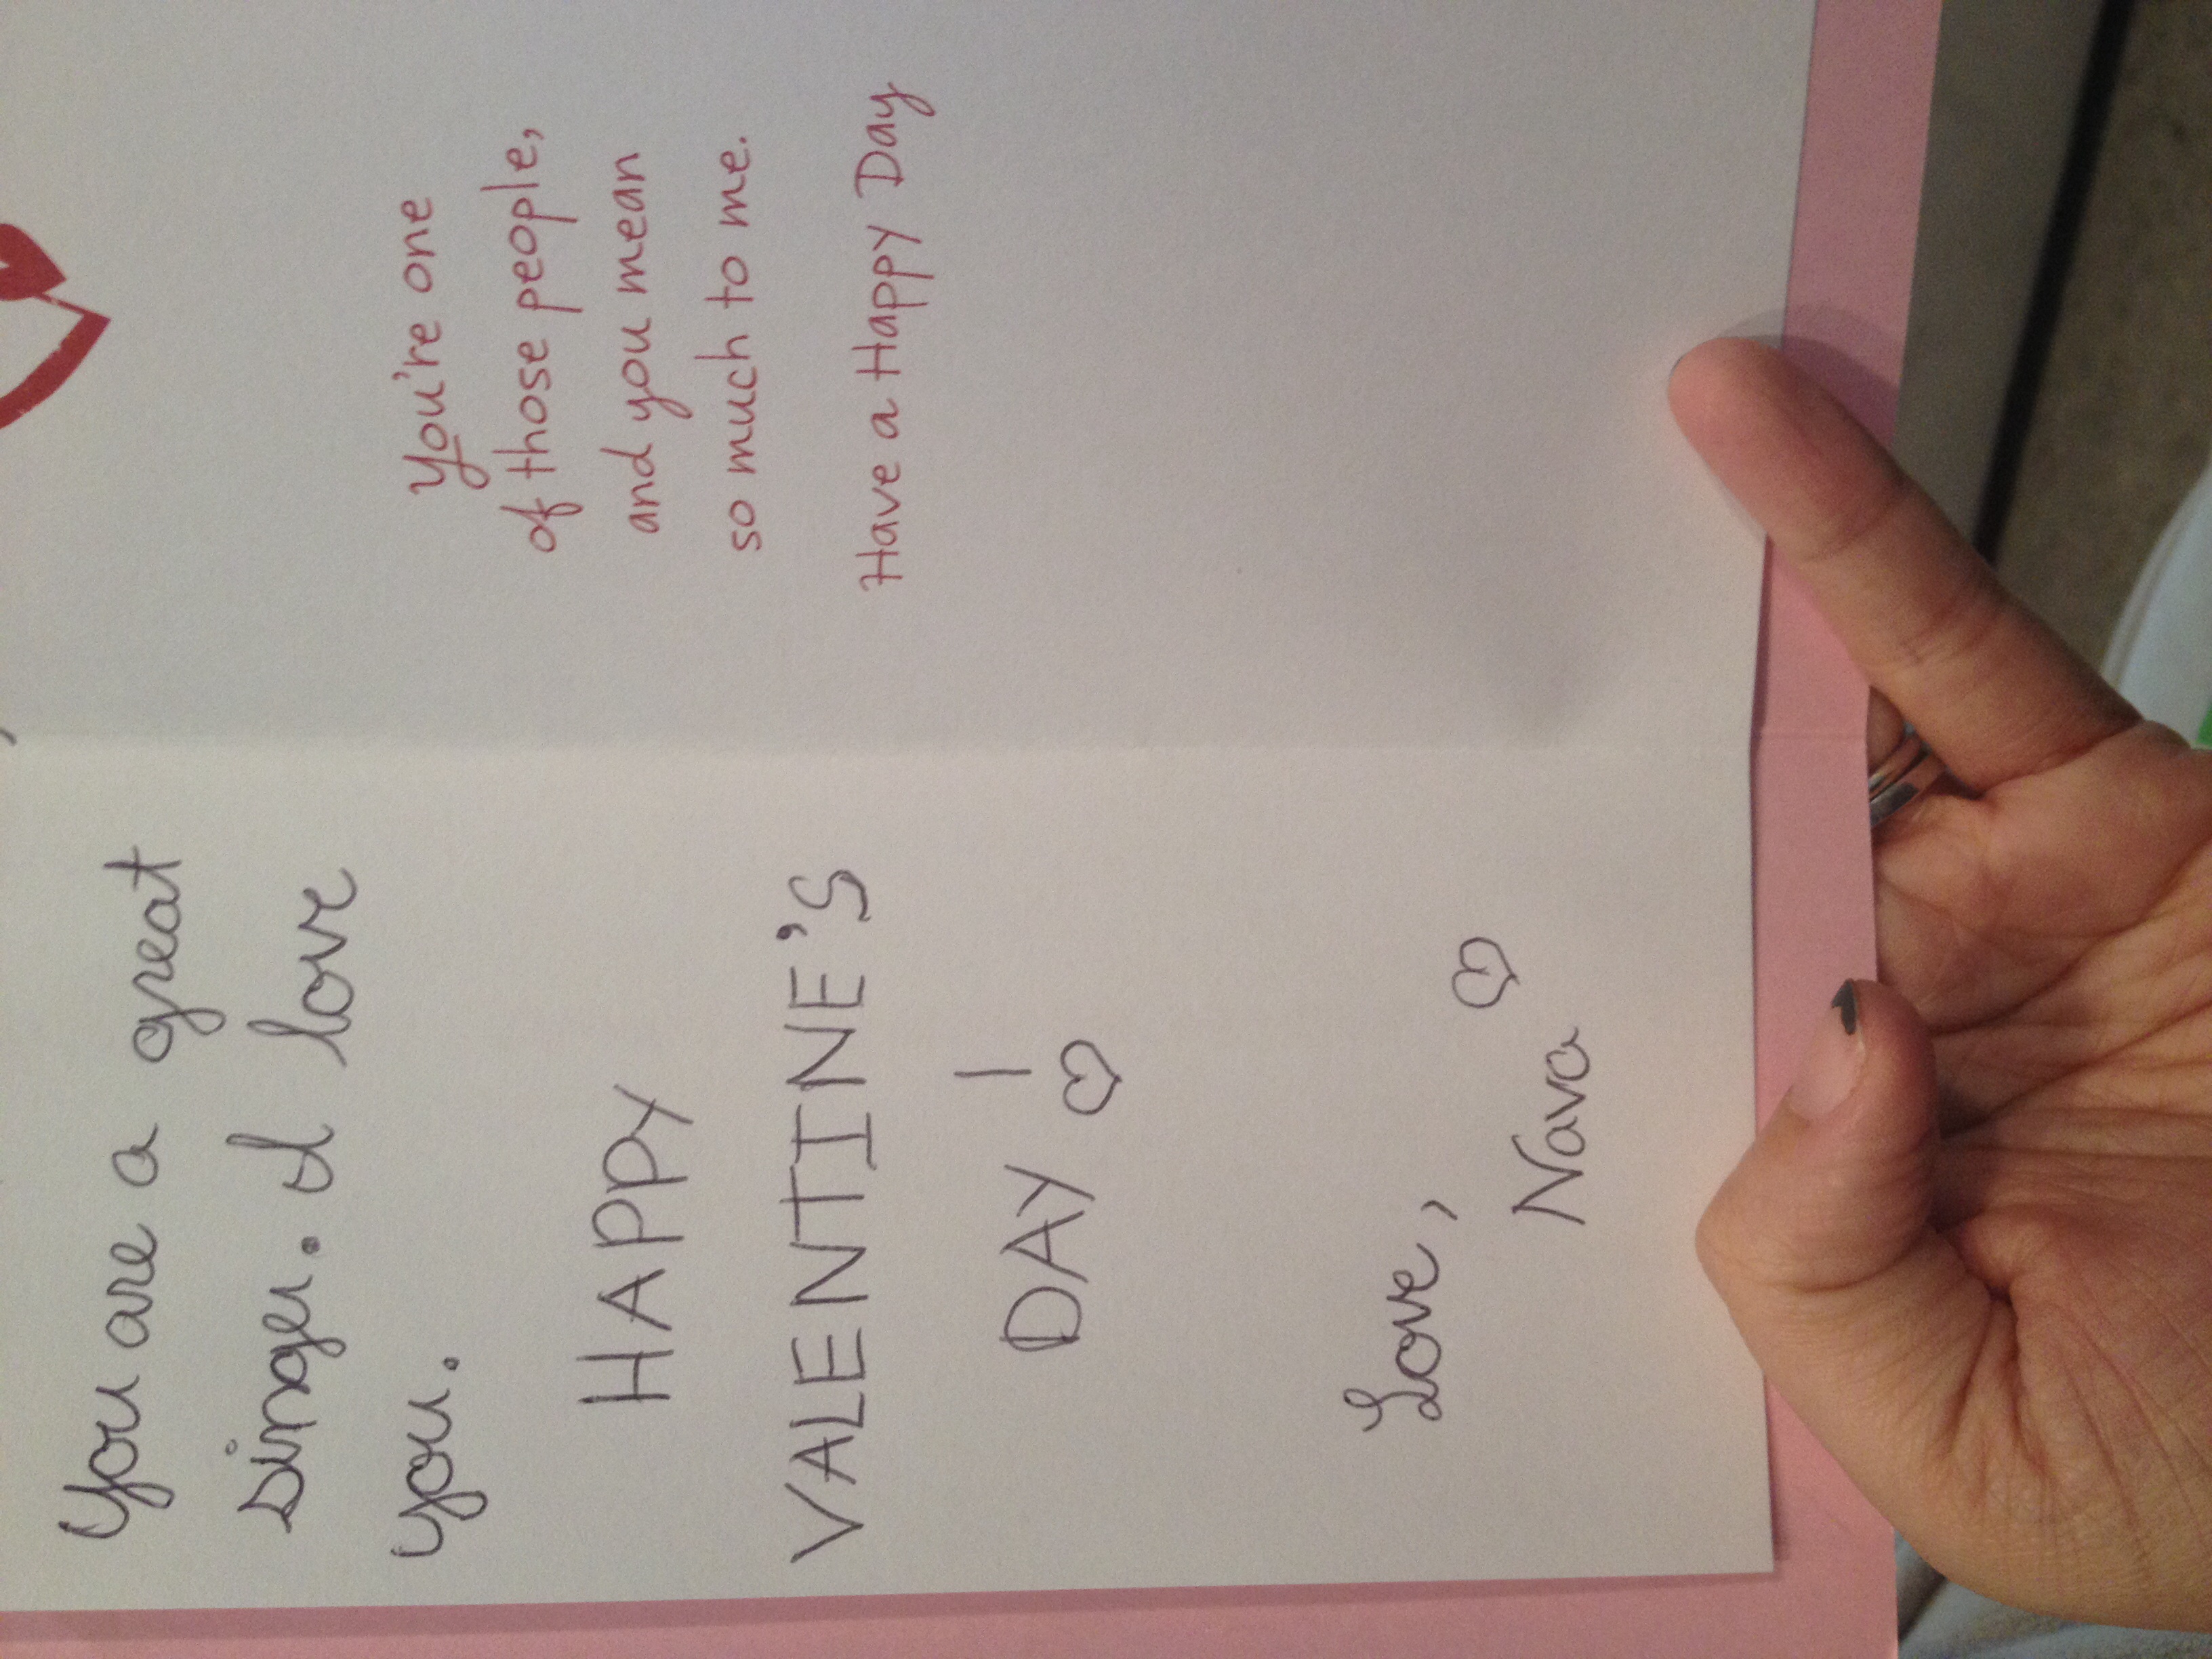 You are a great
singer. I love
you.
HAPPY
VALENTINE'S
DAY!
Love,
Nava
You're one
of those people,
and you mean
so much to me.
Have a Happy Day